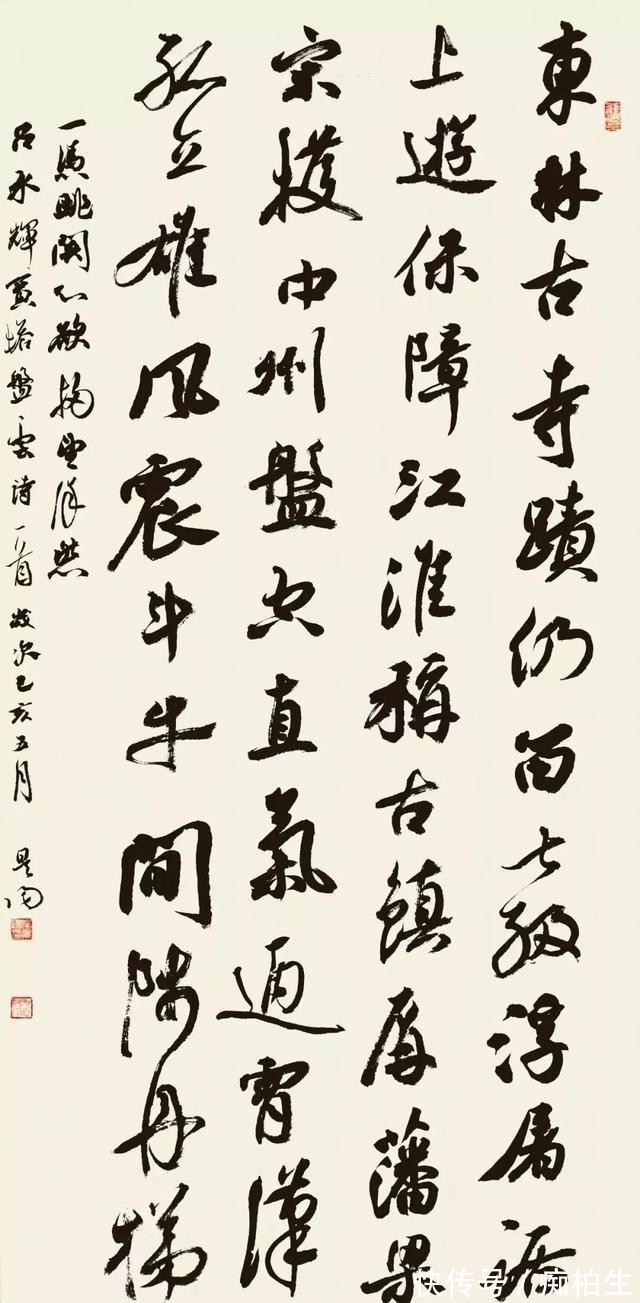 東林古寺蹟仍留七級浮屠泝
上遊保障江淮稱古鎮屏藩
宋中州盤空直氣通霄漢
孤立雄風震斗牛間陟丹梯
一馮眺關心欲掬望洋
吕永輝賈塔盤雲詩一首歲次己亥五月
快传号/痴柏生